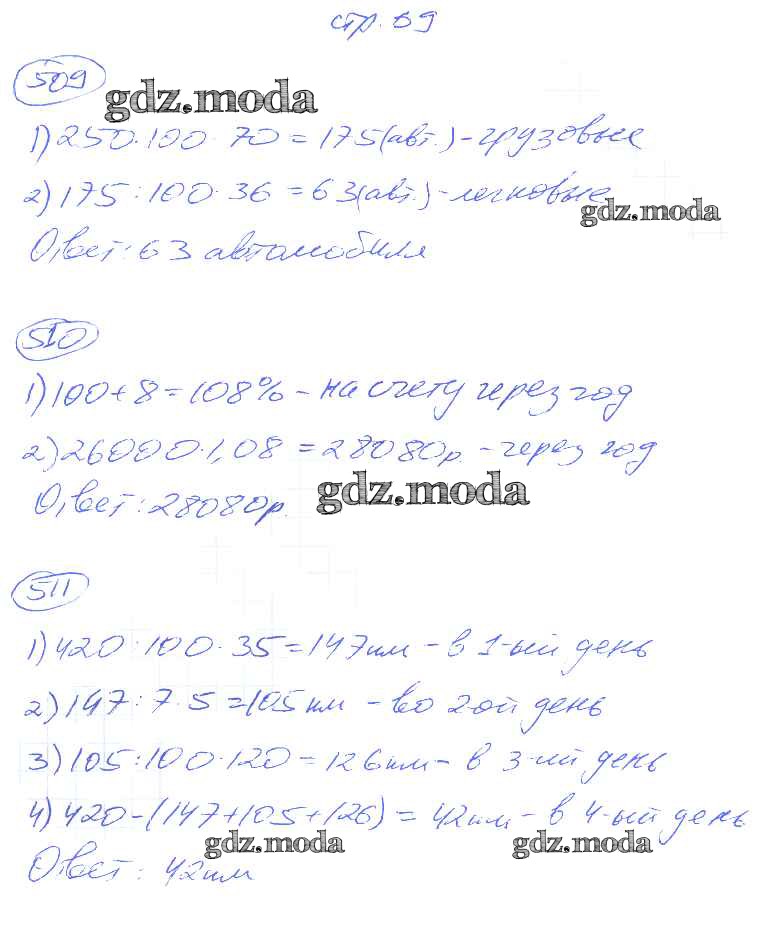 стр. 89
509
gdz.moda
1) 250:100·70=175(авт.)-грузовые
2) 175:100·36=63(авт.)-легковые
gdz.moda
Ответ: 63 автомобиля
510
1) 100+8=108% - на счету через год
2) 26000·1,08=28080р. - через год
Ответ: 28080р.
gdz.moda
511
1) 420:100·35=147км - в 1-ый день
2) 147:7·5=105км - во 2ой день
3) 105:100·120=126км - в 3-ий день
4) 420-(147+105+126)=42км - в 4-ый день
gdz.moda gdz.moda
Ответ: 42км